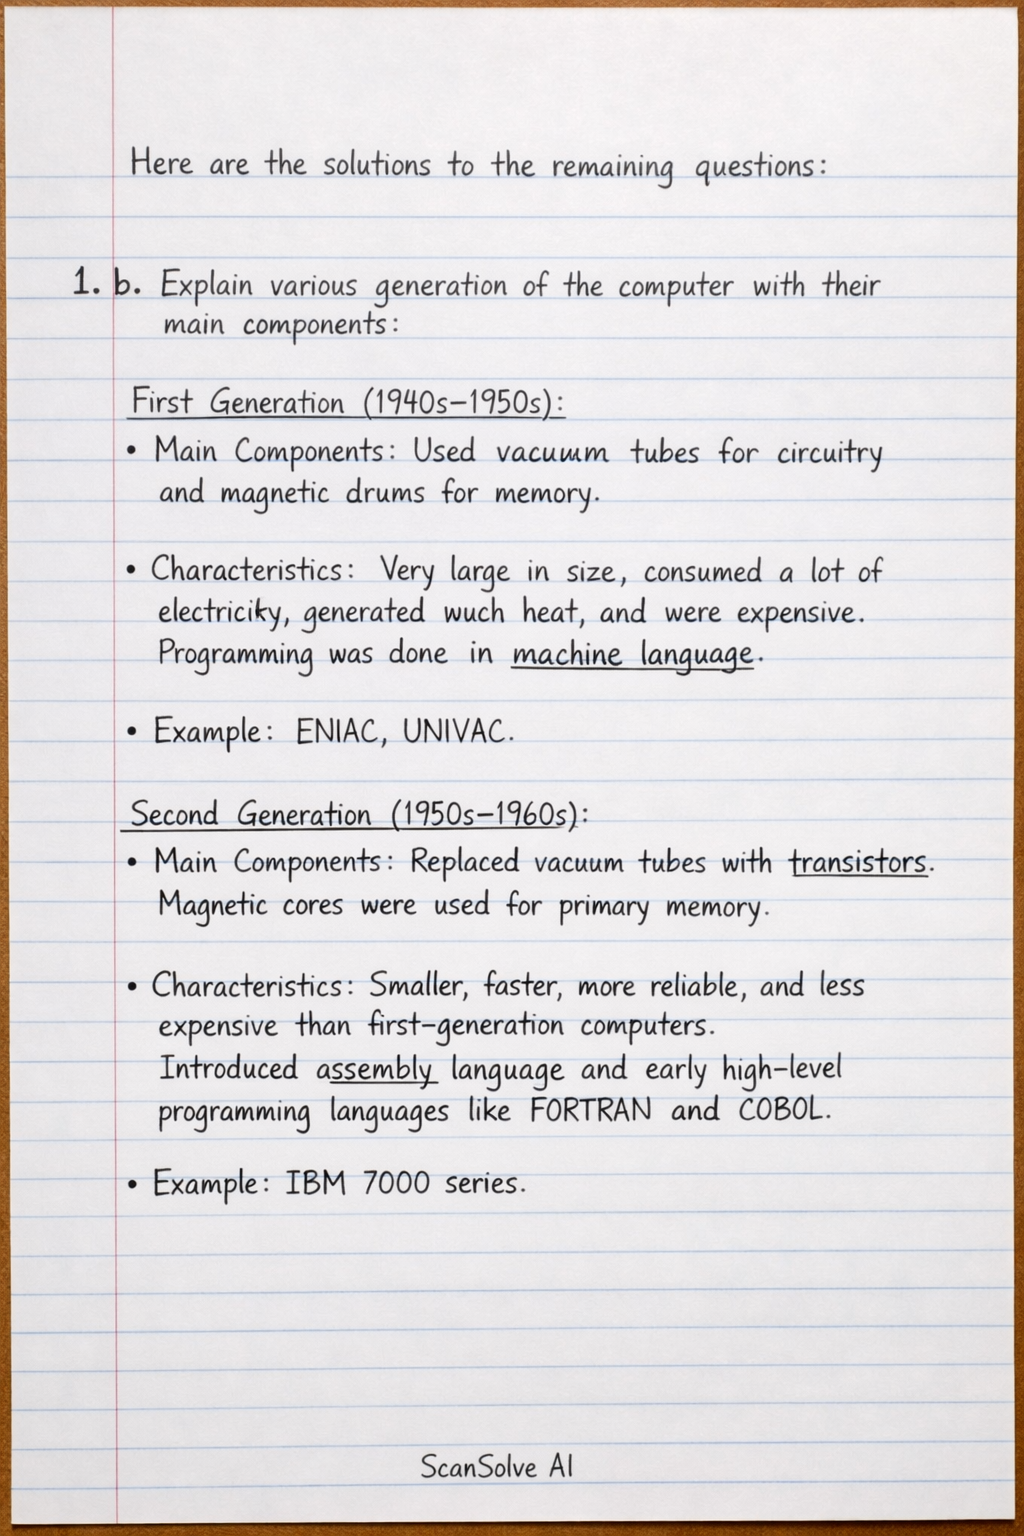 Here are the solutions to the remaining questions:
1. b. Explain various generation of the computer with their
main components:
First Generation (1940s–1950s):
• Main Components: Used vacuum tubes for circuitry
and magnetic drums for memory.
• Characteristics: Very large in size, consumed a lot of
electriciky, generated wuch heat, and were expensive.
Programming was done in machine language.
• Example: ENIAC, UNIVAC.
Second Generation (1950s–1960s):
• Main Components: Replaced vacuum tubes with transistors.
Magnetic cores were used for primary memory.
• Characteristics: Smaller, faster, more reliable, and less
expensive than first-generation computers.
Introduced assembly language and early high-level
programming languages like FORTRAN and COBOL.
• Example: IBM 7000 series.
ScanSolve AI